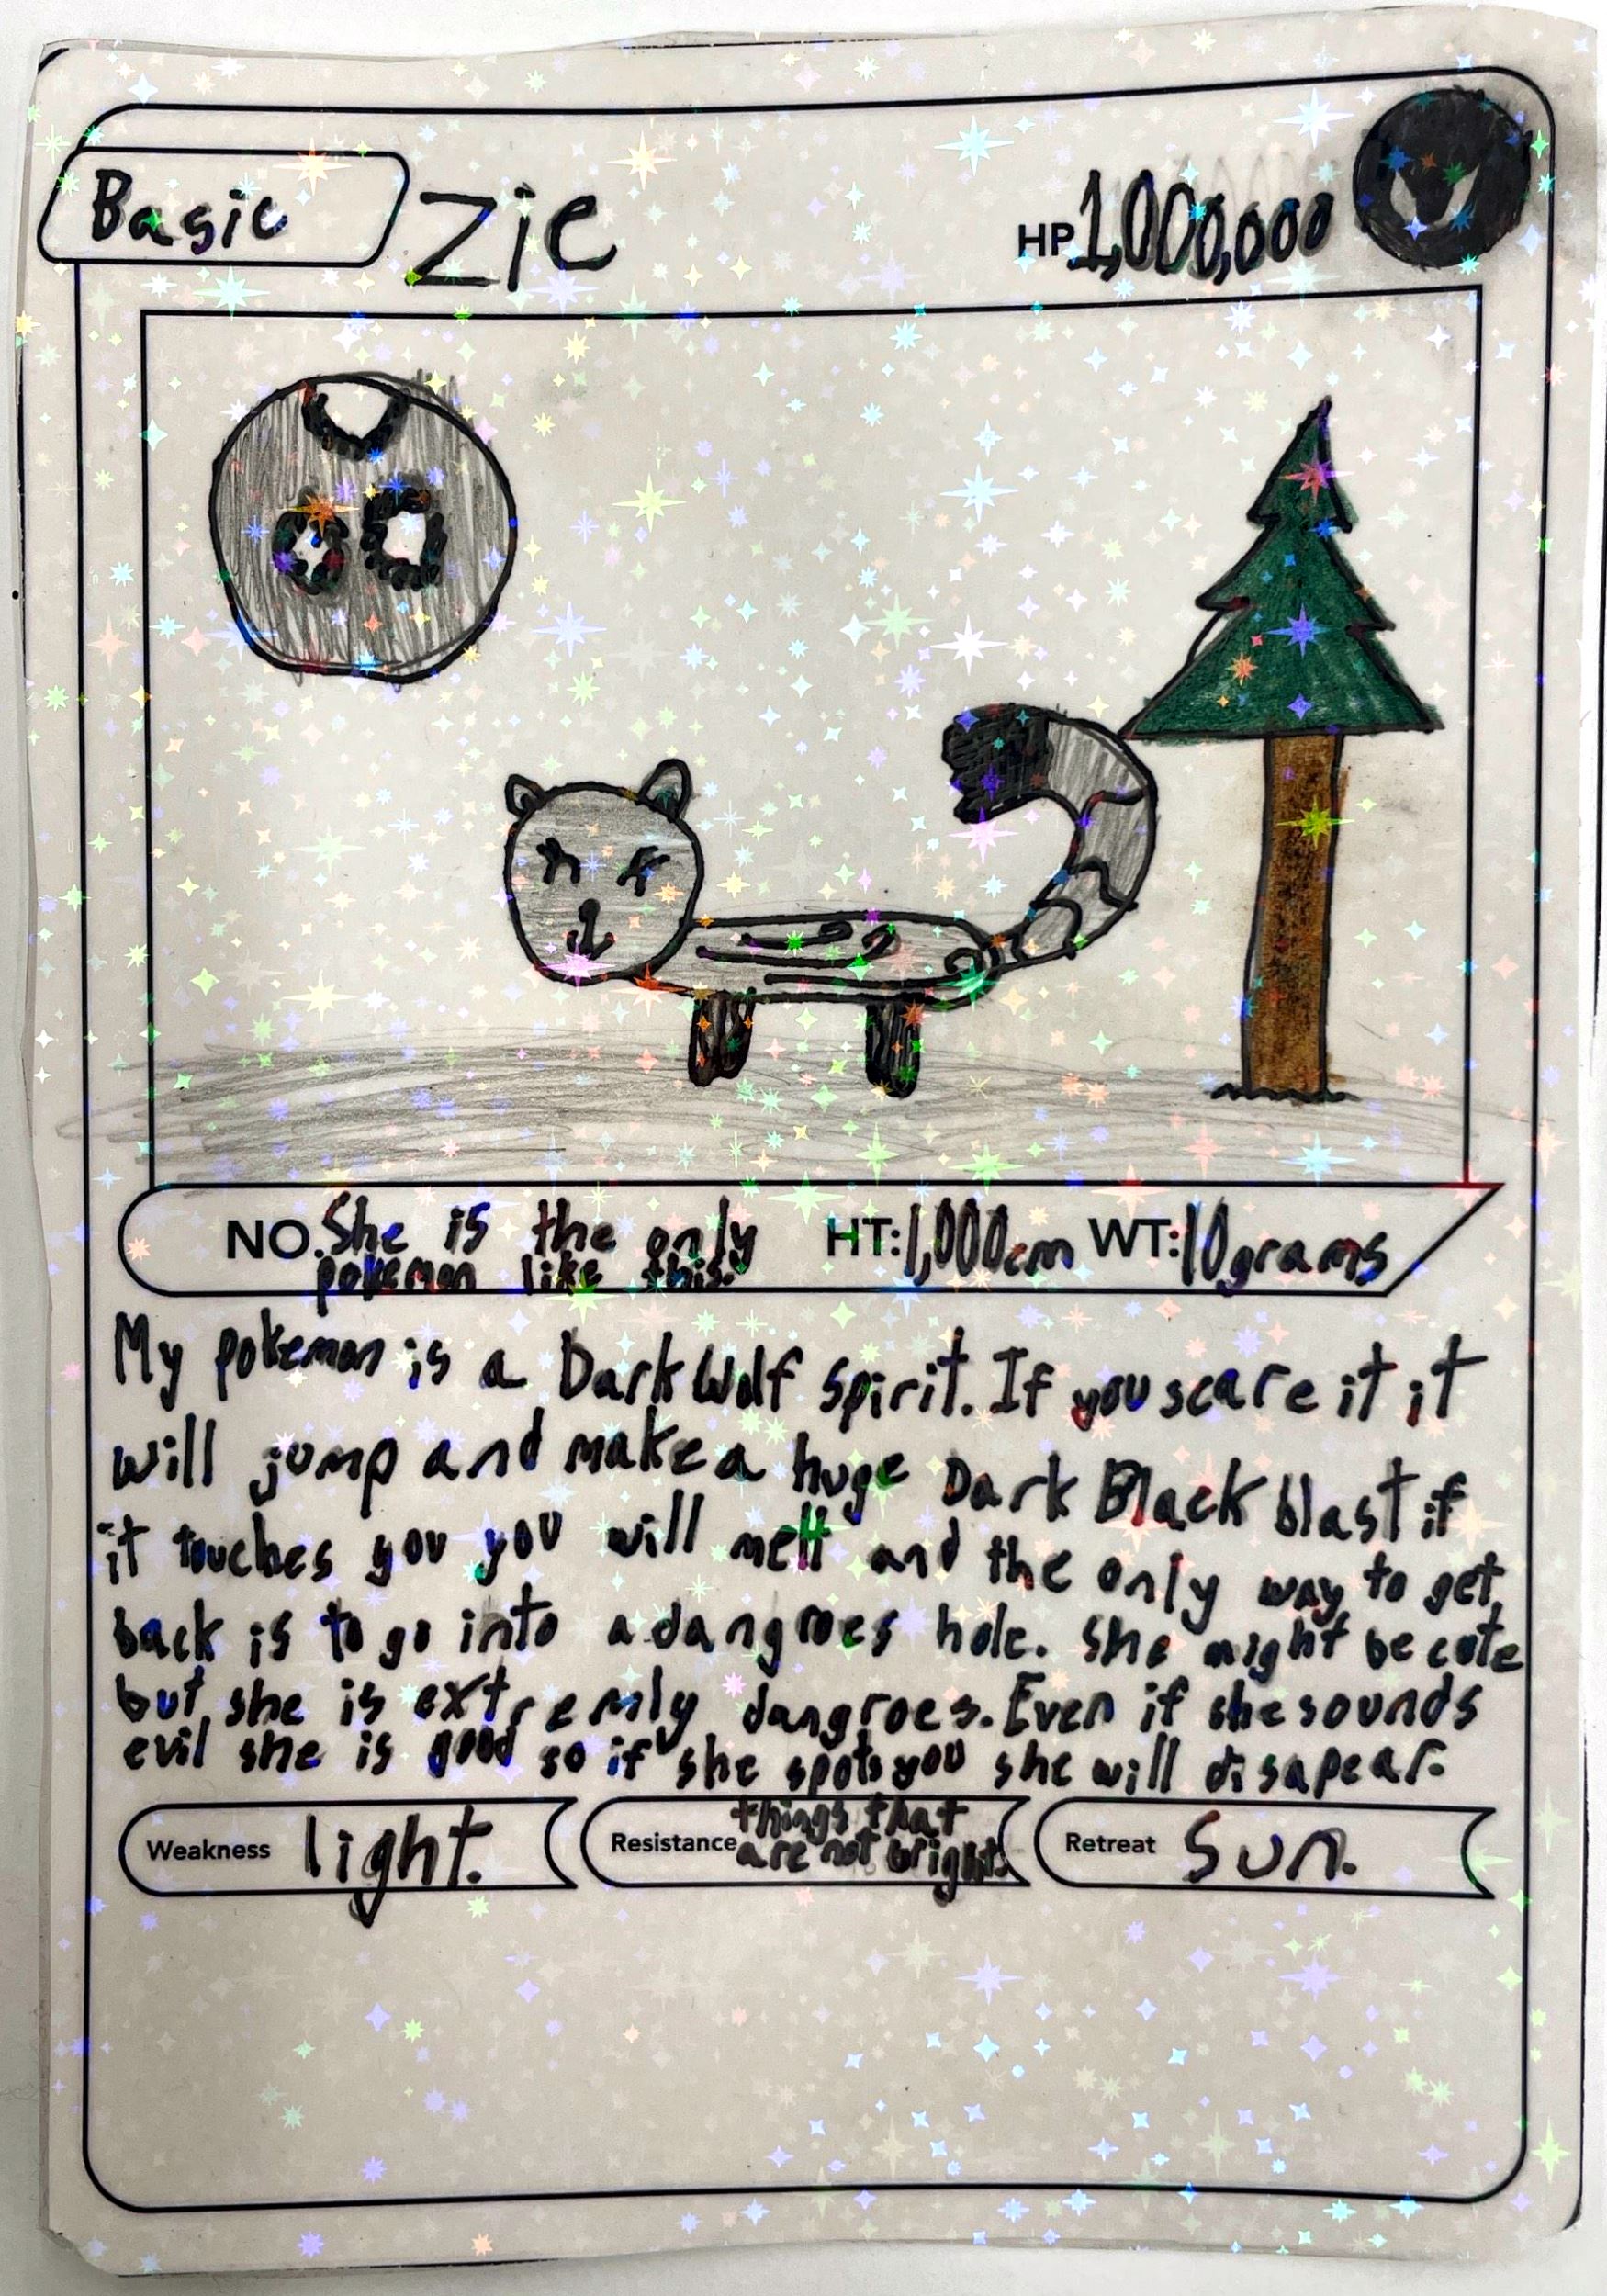 Basic Zie HP 1,000,000
NO. She is the only HT: 1,000cm WT: 10grams
pokemon like this.
My pokemon is a Dark Wolf spirit. If you scare it it
will jump and make a huge Dark Black blast if
it touches you you will melt and the only way to get
back is to go into a dangroes hole. She might be cute
but she is extremly dangroes. Even if she sounds
evil she is good so if she spots you she will disapear.
Weakness light. Resistance things that Retreat Sun.
are not bright.